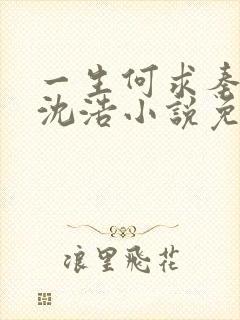 一生何求
沈浩小說免
浪里飛花